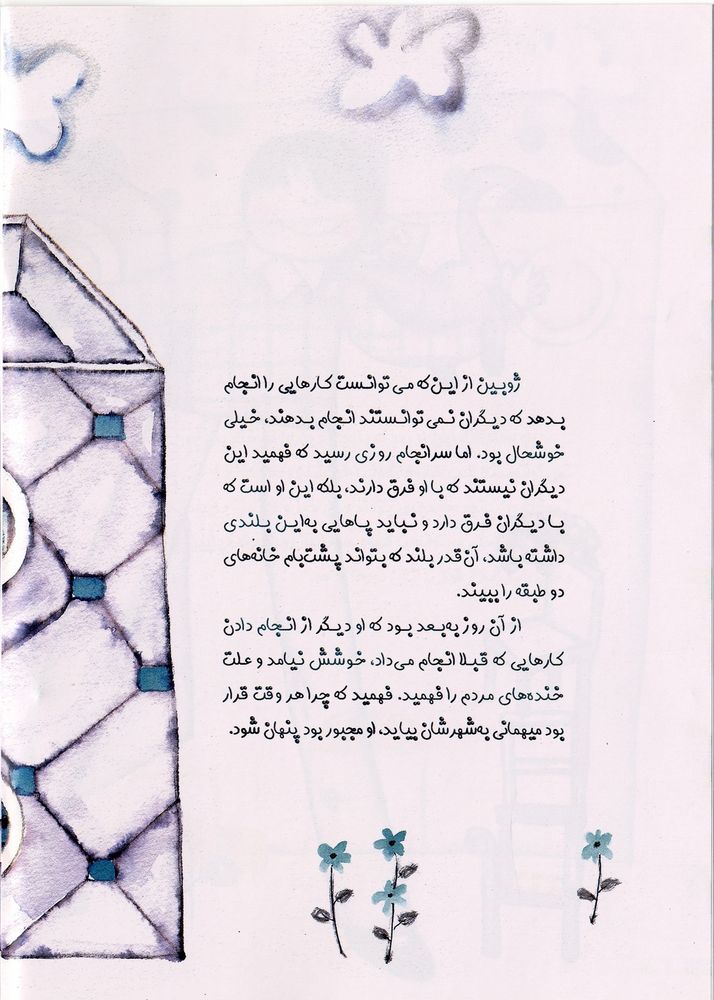 ژوبین از این‌که می‌توانست کارهایی را انجام
بدهد که دیگران نمی‌توانستند انجام بدهند، خیلی
خوشحال بود. اما سرانجام روزی رسید که فهمید این
دیگران نیستند که با او فرق دارند، بلکه این او است که
با دیگران فرق دارد و نباید پاهایی به‌این بلندی
داشته باشد، آن‌قدر بلند که بتواند پشت‌بام خانه‌های
دو طبقه را ببیند.
از آن روز به‌بعد بود که او دیگر از انجام دادن
کارهایی که قبلا انجام می‌داد، خوشش نیامد و علت
خنده‌های مردم را فهمید. فهمید که چرا هر وقت قرار
بود میهمانی به‌شهرشان بیاید، او مجبور بود پنهان شود.